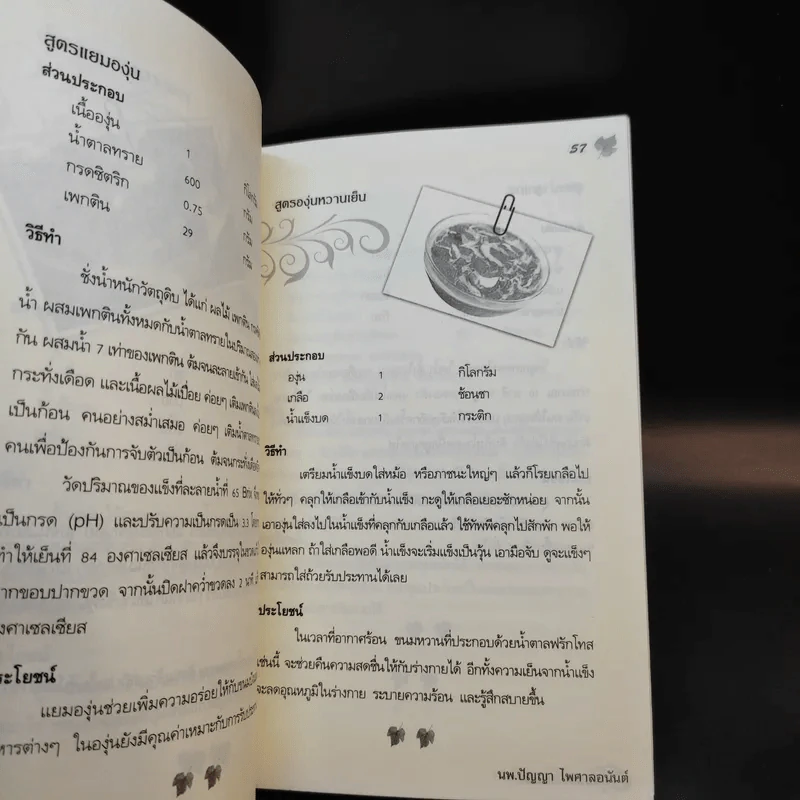 สูตรแยมองุ่น
ส่วนประกอบ
เนื้อองุ่น 1 กิโลกรัม
น้ำตาลทราย 600 กรัม
กรดซิตริก 0.75 กรัม
เพกติน 29 กรัม
วิธีทำ
ชั่งน้ำหนักวัตถุดิบ ได้แก่ ผลไม้ เพกติน
น้ำ ผสมเพกตินทั้งหมดกับน้ำตาลทรายในปริมาณ
กัน ผสมน้ำ 7 เท่าของเพกติน ต้มจนละลายเข้ากัน
กระทั่งเดือด และเนื้อผลไม้เปื่อย ค่อยๆ เติมเพกติน
เป็นก้อน คนอย่างสม่ำเสมอ ค่อยๆ เติมน้ำตาล
คนเพื่อป้องกันการจับตัวเป็นก้อน ต้มจนกระทั่ง
วัดปริมาณของแข็งที่ละลายน้ำที่ 65 Brix
เป็นกรด (pH) และปรับความเป็นกรดเป็น 3.3
ทำให้เย็นที่ 84 องศาเซลเซียส แล้วจึงบรรจุในขวด
ปากขอบปากขวด จากนั้นปิดฝาคว่ำขวดลง 2 นาที
องศาเซลเซียส
ประโยชน์
แยมองุ่นช่วยเพิ่มความอร่อยให้กับขนม
หารต่างๆ ในองุ่นยังมีคุณค่าเหมาะกับการรับ
57
สูตรองุ่นหวานเย็น
ส่วนประกอบ
องุ่น 1 กิโลกรัม
เกลือ 2 ช้อนชา
น้ำแข็งบด 1 กระติก
วิธีทำ
เตรียมน้ำแข็งบดใส่หม้อ หรือภาชนะใหญ่ๆ แล้วก็โรยเกลือไป
ให้ทั่วๆ คลุกให้เกลือเข้ากับน้ำแข็ง กะดูให้เกลือเยอะซักหน่อย จากนั้น
เอาองุ่นใส่ลงไปในน้ำแข็งที่คลุกกับเกลือแล้ว ใช้ทัพพีคลุกไปสักพัก พอให้
องุ่นแหลก ถ้าใส่เกลือพอดี น้ำแข็งจะเริ่มแข็งเป็นวุ้น เอามือจับ ดูจะแข็งๆ
สามารถใส่ถ้วยรับประทานได้เลย
ประโยชน์
ในเวลาที่อากาศร้อน ขนมหวานที่ประกอบด้วยน้ำตาลฟรักโทส
เช่นนี้ จะช่วยคืนความสดชื่นให้กับร่างกายได้ อีกทั้งความเย็นจากน้ำแข็ง
จะลดอุณหภูมิในร่างกาย ระบายความร้อน และรู้สึกสบายขึ้น
นพ.ปัญญา ไพศาลอนันต์